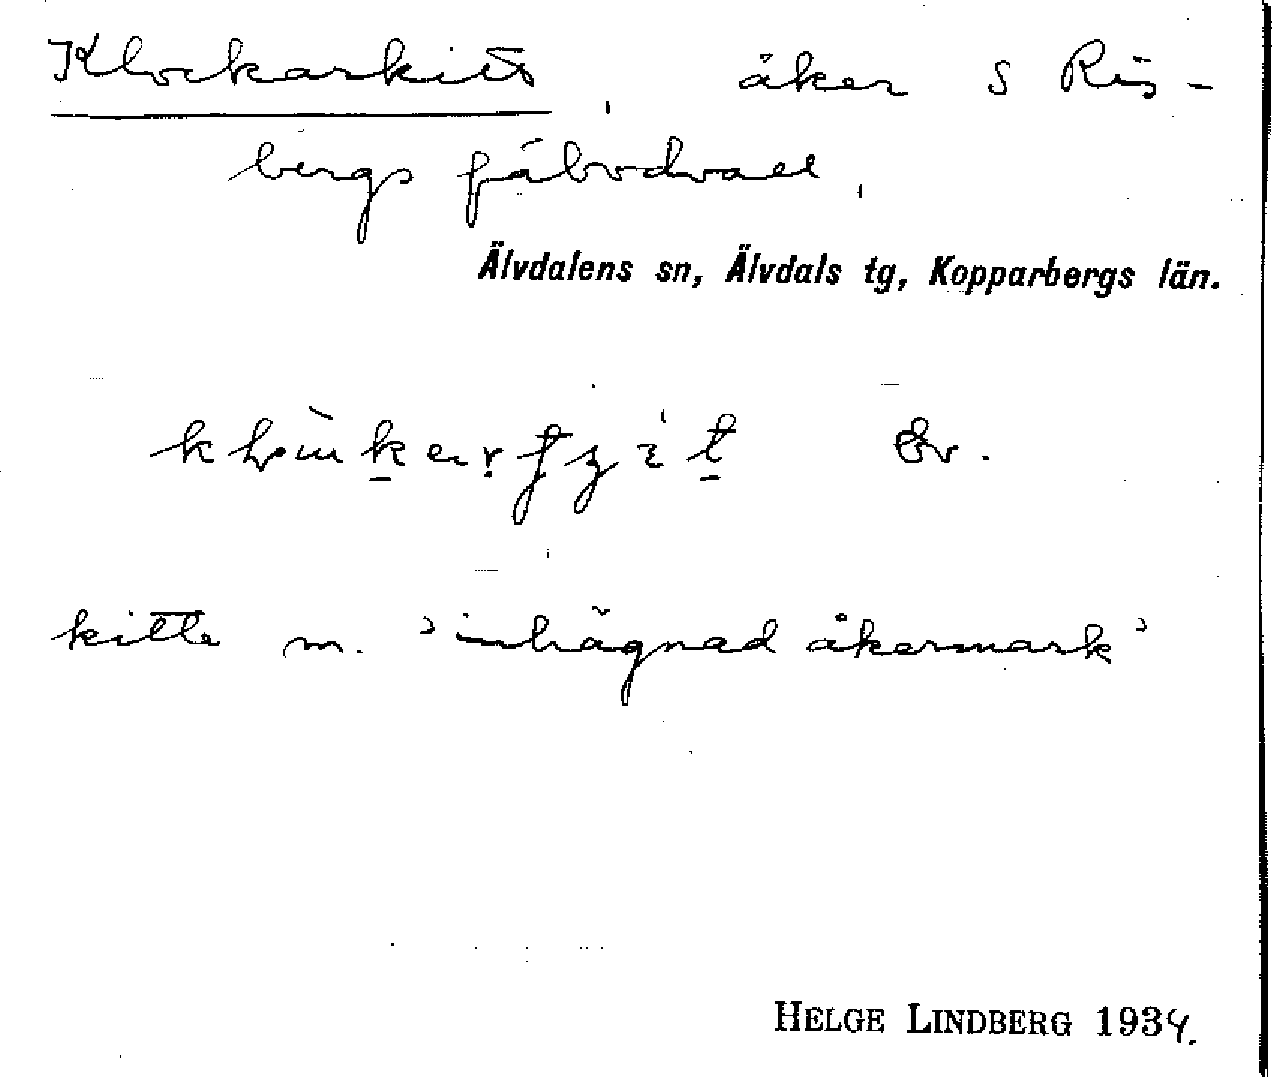 Klockarkitt, åker S Ris-
bergs fäbodvall,
Älvdalens sn, Älvdals tg, Kopparbergs län.
kitte m. 'inhägnad åkermark'
HELGE LINDBERG 1934.